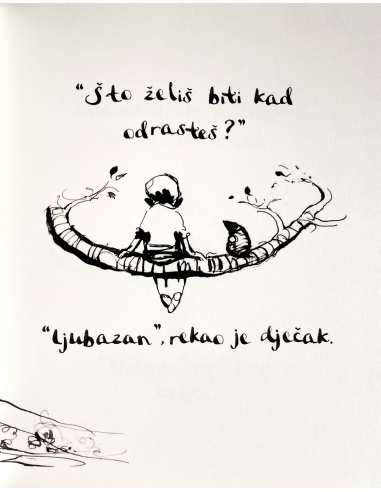 "Što želiš biti kad
odrasteš?"
"Ljubazan", rekao je dječak.